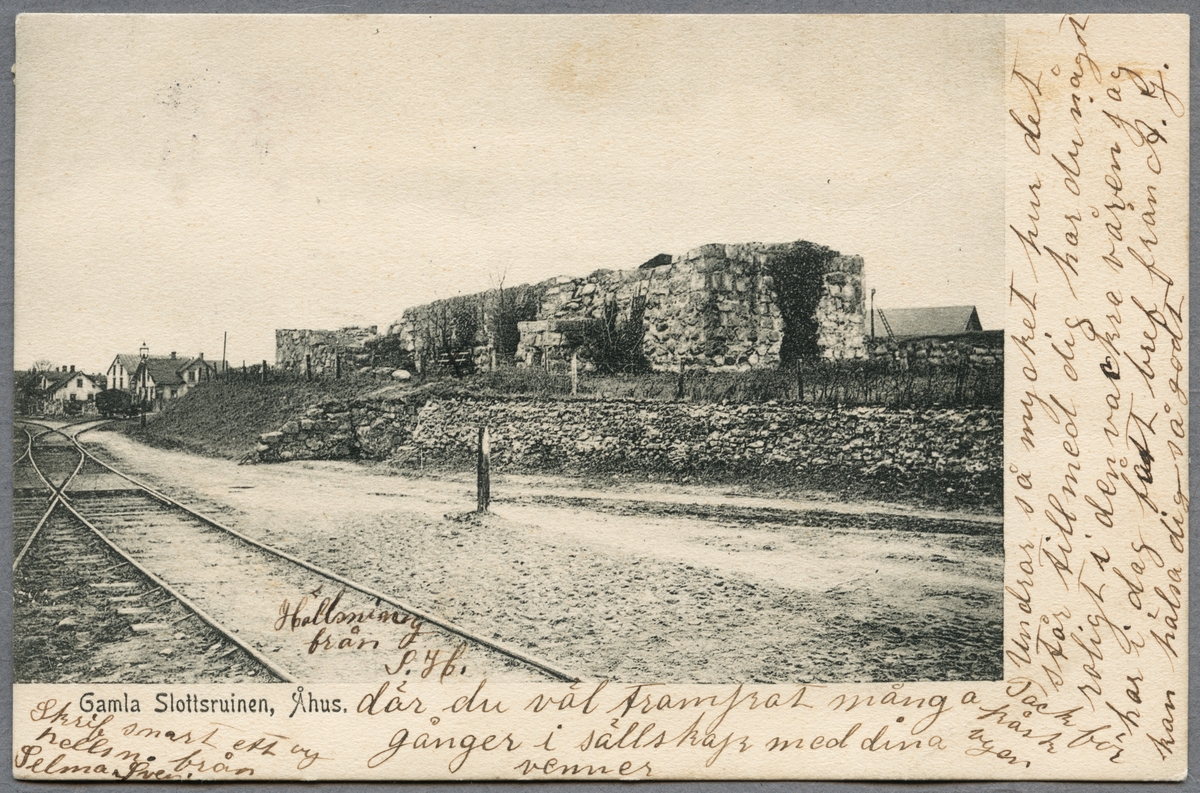 Undrar så mycket hur det
står till med dig har du något
roligt i den vackre våren jag
har i dag fått bref från A. G.
kan hälsa dig så godt
Tack för
Hällsning
från
S. H.
Gamla Slottsruinen, Åhus.
där du väl trampat många
gånger i sällskap med dina
venner
Skrif snart ett og
hellsn. från
Selma Sven.